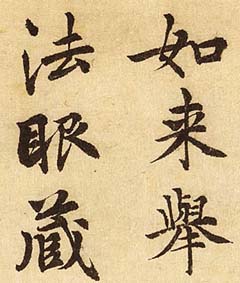 如来舉
法眼蔵